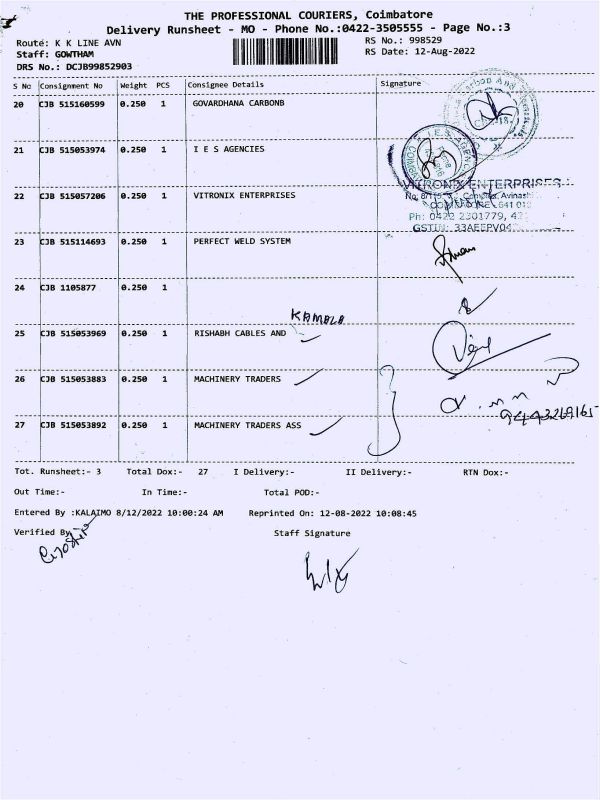 THE PROFESSIONAL COURIERS, Coimbatore
Delivery Runsheet - MO - Phone No.:0422-3505555 - Page No.:3
Route: K K LINE AVN
RS No.: 998529
Staff: GOWTHAM
RS Date: 12-Aug-2022
DRS No.: DCJB99852903
S No Consignment No Weight PCS Consignee Details Signature
20 CJB 515160599 0.250 1 GOVARDHANA CARBONB
21 CJB 515053974 0.250 1 I E S AGENCIES
22 CJB 515057206 0.250 1 VITRONIX ENTERPRISES
VITRONIX ENTERPRISES
Avinashi
COIMBATORE 641 01
Ph: 0422 2301779, 42
GSTIN: 33AEEPV04
23 CJB 515114693 0.250 1 PERFECT WELD SYSTEM
24 CJB 1105877 0.250 1
KAMALA
25 CJB 515053969 0.250 1 RISHABH CABLES AND
26 CJB 515053883 0.250 1 MACHINERY TRADERS
9443269165
27 CJB 515053892 0.250 1 MACHINERY TRADERS ASS
Tot. Runsheet:- 3 Total Dox:- 27 I Delivery:- II Delivery:- RTN Dox:-
Out Time:- In Time:- Total POD:-
Entered By :KALAIMO 8/12/2022 10:00:24 AM Reprinted On: 12-08-2022 10:08:45
Verified By Staff Signature